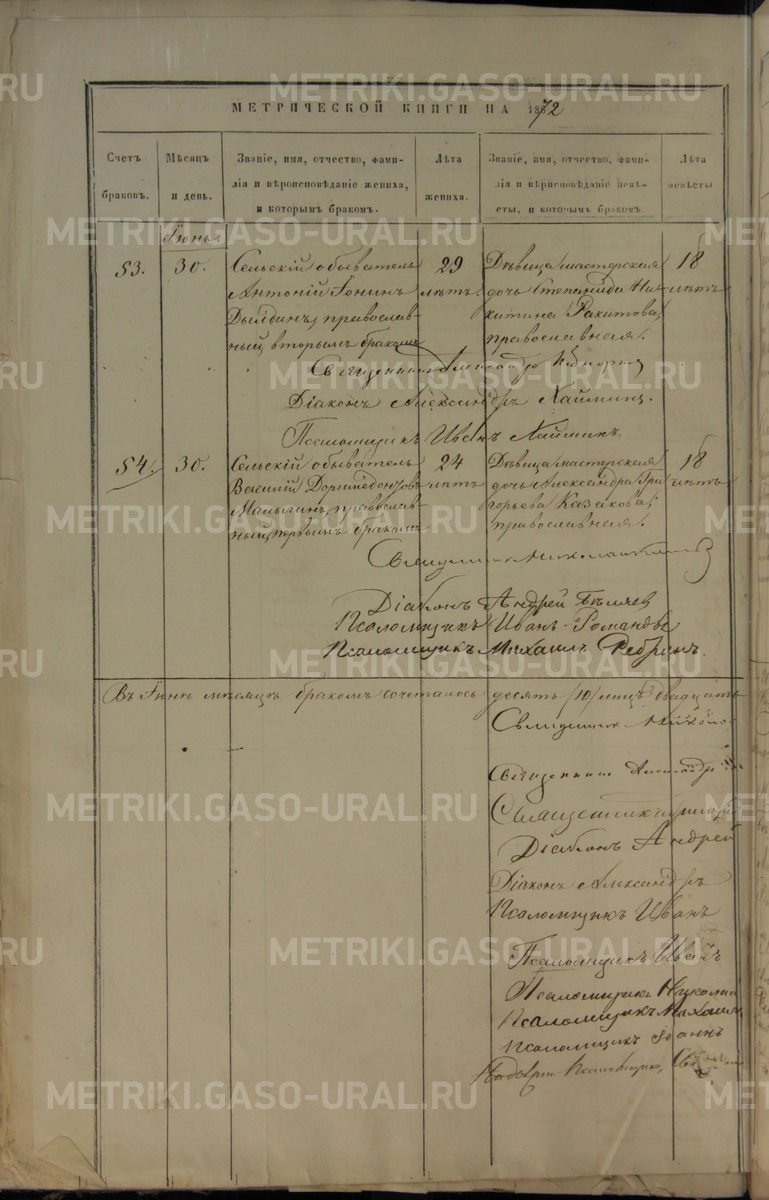 МЕТРИЧЕСКОЙ КНИГИ НА 1872
Счетъ браковъ.
Мѣсяцъ и день.
Званіе, имя, отчество, фами-
лія и вѣроисповѣданіе жениха,
и которымъ бракомъ.
Лѣта жениха.
Званіе, имя, отчество, фами-
лія и вѣроисповѣданіе невѣ-
сты, и которымъ бракомъ.
Лѣта невѣсты
Іюнь.
53.
30.
Сельскій обыватель
Антоній Іонинъ
Дылдинъ, православ-
ный, вторымъ бракомъ
29
лѣтъ.
Дѣвица мастерская
дочь Степанида Ни-
китина Ракитова,
православная.
18
лѣтъ
Священникъ Александръ
Діаконъ Александръ
Псаломщикъ Иванъ
54.
30.
Сельскій обыватель
Василій Доримедонтовъ
Малыгинъ, православ-
ный, первымъ бракомъ
24
лѣтъ
Дѣвица мастерская
дочь Александра Гри-
горьева Казакова,
православная.
18
лѣтъ
Священникъ
Діаконъ Андрей Бѣляев
Псаломщикъ Иванъ
Псаломщикъ Михаилъ
Въ Іюнѣ мѣсяцѣ бракомъ сочеталось десять /10/ лицъ двадцать
Священникъ
Священникъ Александръ
Священникъ
Діаконъ Андрей
Діаконъ Александръ
Псаломщикъ Иванъ
Псаломщикъ Иванъ
Псаломщикъ Николай
Псаломщикъ Михаилъ
Псаломщикъ Іоаннъ
METRIKI.GASO-URAL.RU